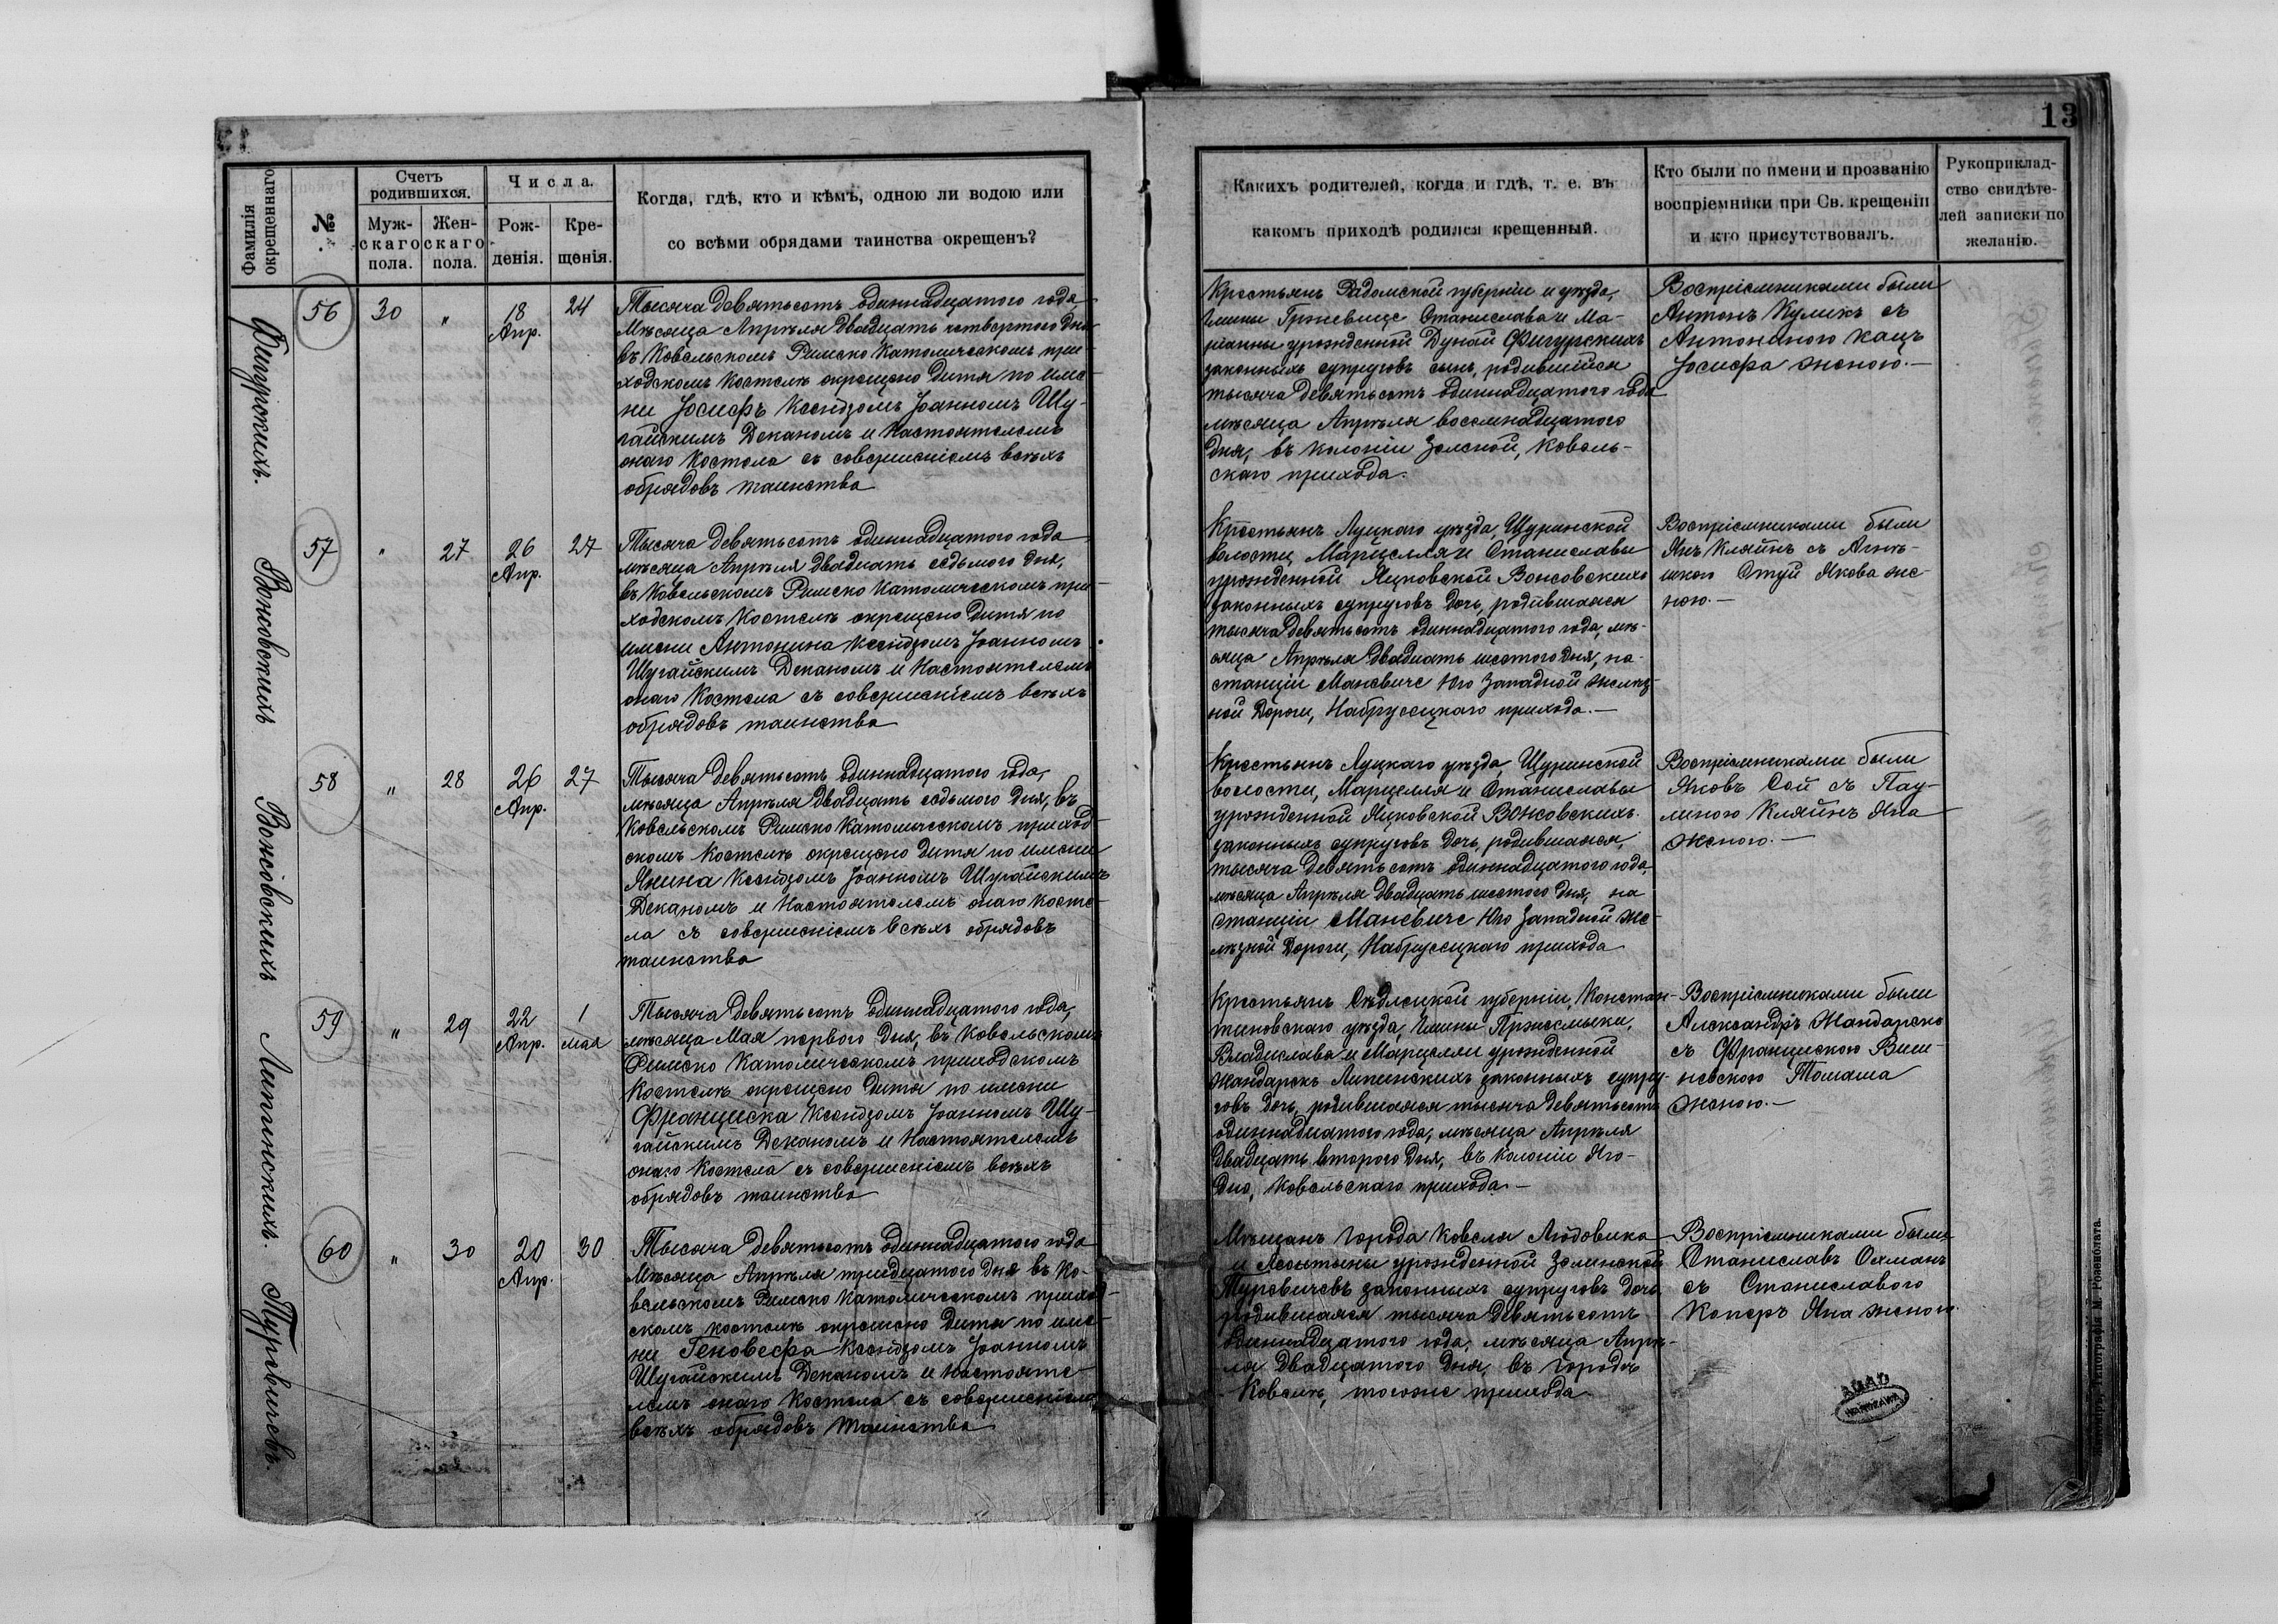 13
Фамилія
окрещеннаго
№
Счетъ
родившихся.
Муж-
скаго
пола.
Жен-
скаго
пола.
Числа.
Рож-
денія.
Кре-
щенія.
Когда, гдѣ, кто и кѣмъ, одною ли водою или
со всѣми обрядами таинства окрещенъ?
Какихъ родителей, когда и гдѣ, т. е. въ
какомъ приходѣ родился крещенный.
Кто были по имени и прозванію
воспріемники при Св. крещеніи
и кто присутствовалъ.
Рукоприклад-
ство свидѣте-
лей записки по
желанію.
Фигурскихъ.
56
30
"
18
Апр.
24
Тысяча девятьсотъ одиннадцатого года
Мѣсяца Апрѣля двадцать четвертого дня
въ Ковельскомъ Римско Католическомъ при-
ходскомъ Костелѣ окрещено дитя по име-
ни Іосифъ Ксендзомъ Іоанномъ Шу-
гайскимъ Деканомъ и Настоятелемъ
онаго Костела съ совершеніемъ всѣхъ
обрядовъ таинства
Крестьянъ Радомской губерніи и уѣзда,
гмины Гржевице Станислава и Ма-
ріанны урожденной Дунай Фигурскихъ
законныхъ супруговъ сынъ, родившійся
тысяча девятьсотъ одиннадцатого года
мѣсяца Апрѣля восемнадцатого
дня, въ колоніи Зелской, Ковель-
скаго прихода.
Воспріемниками были
Антонъ Куликъ съ
Антониною Кацъ
Іосифа женою.—
Вонсовскихъ
57
"
27
26
Апр.
27
Тысяча девятьсотъ одиннадцатого года
мѣсяца Апрѣля двадцать седьмого дня,
въ Ковельскомъ Римско Католическомъ при-
ходскомъ Костелѣ окрещено дитя по
имени Антонина Ксендзомъ Іоанномъ
Шугайскимъ Деканомъ и Настоятелемъ
онаго Костела съ совершеніемъ всѣхъ
обрядовъ таинства
Крестьянъ Луцкого уѣзда, Щуринской
волости, Марцелля и Станиславы
урожденной Яцковской Вонсовскихъ
законныхъ супруговъ дочь, родившаяся
тысяча девятьсотъ одиннадцатого года, мѣ-
сяца Апрѣля двадцать шестого дня, на
станціи Маневиче Юго Западной желѣз-
ной Дороги, Набруссцкаго прихода.—
Воспріемниками были
Янъ Кляйнъ съ Агнѣ-
шкою Стуй Якова же-
ною.—
Вонсовскихъ
58
"
28
26
Апр.
27
Тысяча девятьсотъ одиннадцатого года,
мѣсяца Апрѣля двадцать седьмого дня, въ
Ковельскомъ Римско Католическомъ приход-
скомъ Костелѣ окрещено дитя по имени
Янина Ксендзомъ Іоанномъ Шугайскимъ
Деканомъ и Настоятелемъ онаго Косте-
ла съ совершеніемъ всѣхъ обрядовъ
таинства
Крестьянъ Луцкаго уѣзда, Щуринской
волости, Марцелля и Станиславы
урожденной Яцковской Вонсовскихъ
законныхъ супруговъ дочь, родившаяся,
тысяча девятьсотъ одиннадцатого года,
мѣсяца Апрѣля двадцать шестого дня, на
станціи Маневиче Юго Западной же-
лѣзной Дороги, Набруссцкаго прихода
Воспріемниками были
Яковъ Сой съ Пау-
линою Кляйнъ Яна
женою.—
Липинскихъ.
59
"
29
22
Апр.
1
мая
Тысяча девятьсотъ одиннадцатого года,
мѣсяца Мая первого дня, въ Ковельскомъ
Римско Католическомъ приходскомъ
Костелѣ окрещено дитя по имени
Франциска Ксендзомъ Іоанномъ Шу-
гайскимъ Деканомъ и Настоятелемъ
онаго Костела съ совершеніемъ всѣхъ
обрядовъ таинства
Крестьянъ Сѣдлецкой губерніи, Констан-
тиновскаго уѣзда, гмины Пржесмыки,
Владислава и Марцелли урожденной
Жандарскъ Липинскихъ законныхъ супру-
говъ дочь, родившаяся тысяча девятьсотъ
одиннадцатого года, мѣсяца Апрѣля
двадцать второго дня, въ колоніи Яго-
дно, Ковельскаго прихода.—
Воспріемниками были
Александръ Жандарскъ
съ Францискою Виш-
невскою Томаша
женою.—
Туревичевъ.
60
"
30
20
Апр.
30
Тысяча девятьсотъ одиннадцатого года
Мѣсяца Апрѣля тридцатого дня въ Ко-
вельскомъ Римско Католическомъ приход-
скомъ костелѣ окрещено дитя по име-
ни Геновефа Ксендзомъ Іоанномъ
Шугайскимъ Деканомъ и Настояте-
лемъ онаго Костела съ совершеніемъ
всѣхъ обрядовъ таинства
Мѣщанъ города Ковеля Людовика
и Леонтины урожденной Зелинской
Туревичевъ законныхъ супруговъ дочь
родившаяся тысяча девятьсотъ
одиннадцатого года, мѣсяца Апрѣ-
ля двадцатого дня, въ городѣ
Ковелѣ, тогоже прихода
Воспріемниками были
Станиславъ Охманъ
съ Станиславою
Коперъ Яна женою
AGAD
WARSZAWA
Типографія М. Розенблата.